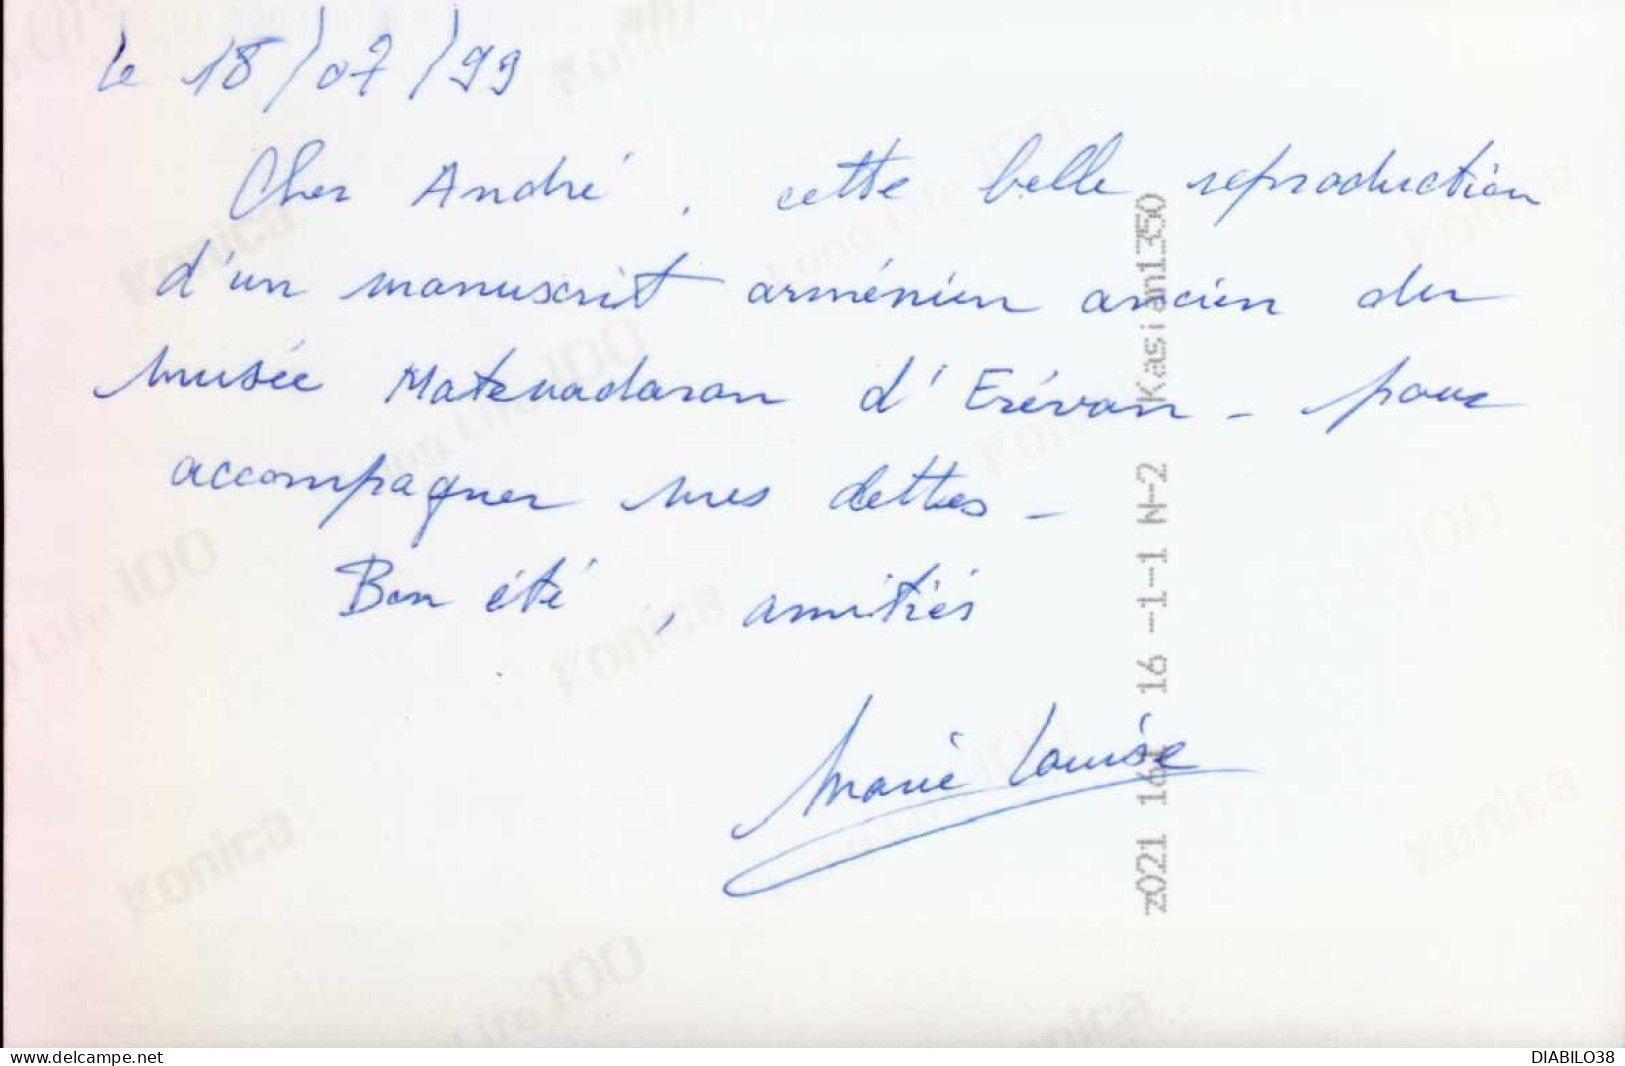 le 18/07/99
Cher André, cette belle reproduction
d'un manuscrit arménien ancien du
musée Matenadaran d'Erévan - pour
accompagner mes dettes -
Bon été, amitiés
Marie Louise
z021 161 16 -1-1 N-2 Kasian1350
Konica
Long Life 100
www.delcampe.net
DIABILO38